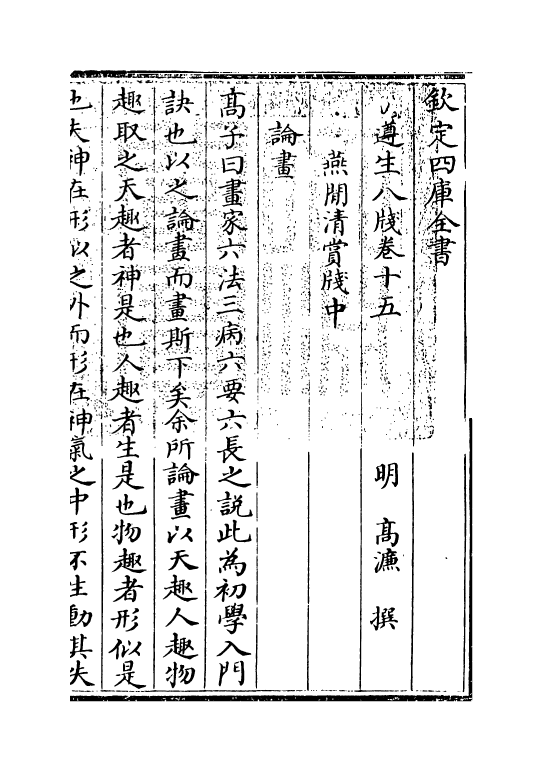 欽定四庫全書
遵生八牋卷十五
明 高濂 撰
燕閒清賞牋中
論畫
高子曰畫家六法三病六要六長之説此為初學入門
訣也以之論畫而畫斯下矣余所論畫以天趣人趣物
趣取之天趣者神是也人趣者生是也物趣者形似是
也夫神在形似之外而形在神氣之中形不生動其失